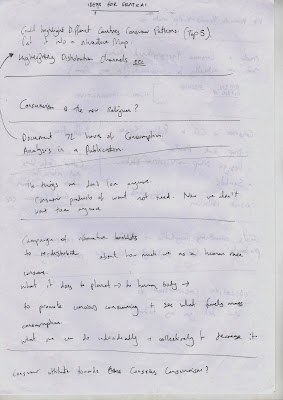 IDEAS FOR VERTICAL
Could highlight Different Countries Consumer Patterns (Top 5)
Put it into a Narrative Map
Highlighting Distribution Channels etc
Consumerism is the new Religion?
Document 72 hours of Consumption
Analysis in a Publication.
The things we don't use anymore
Consumer products of want not need. Now we don't
want them anymore
Campaign of informative booklets
to re-distribute about how much we as a human race
consume.
what it does to planet → to human body →
to promote conscious consuming + see what fuels mass
consumption.
what we can do individually + collectively to decrease it
Consumer attitude towards Conscious Consumerism?